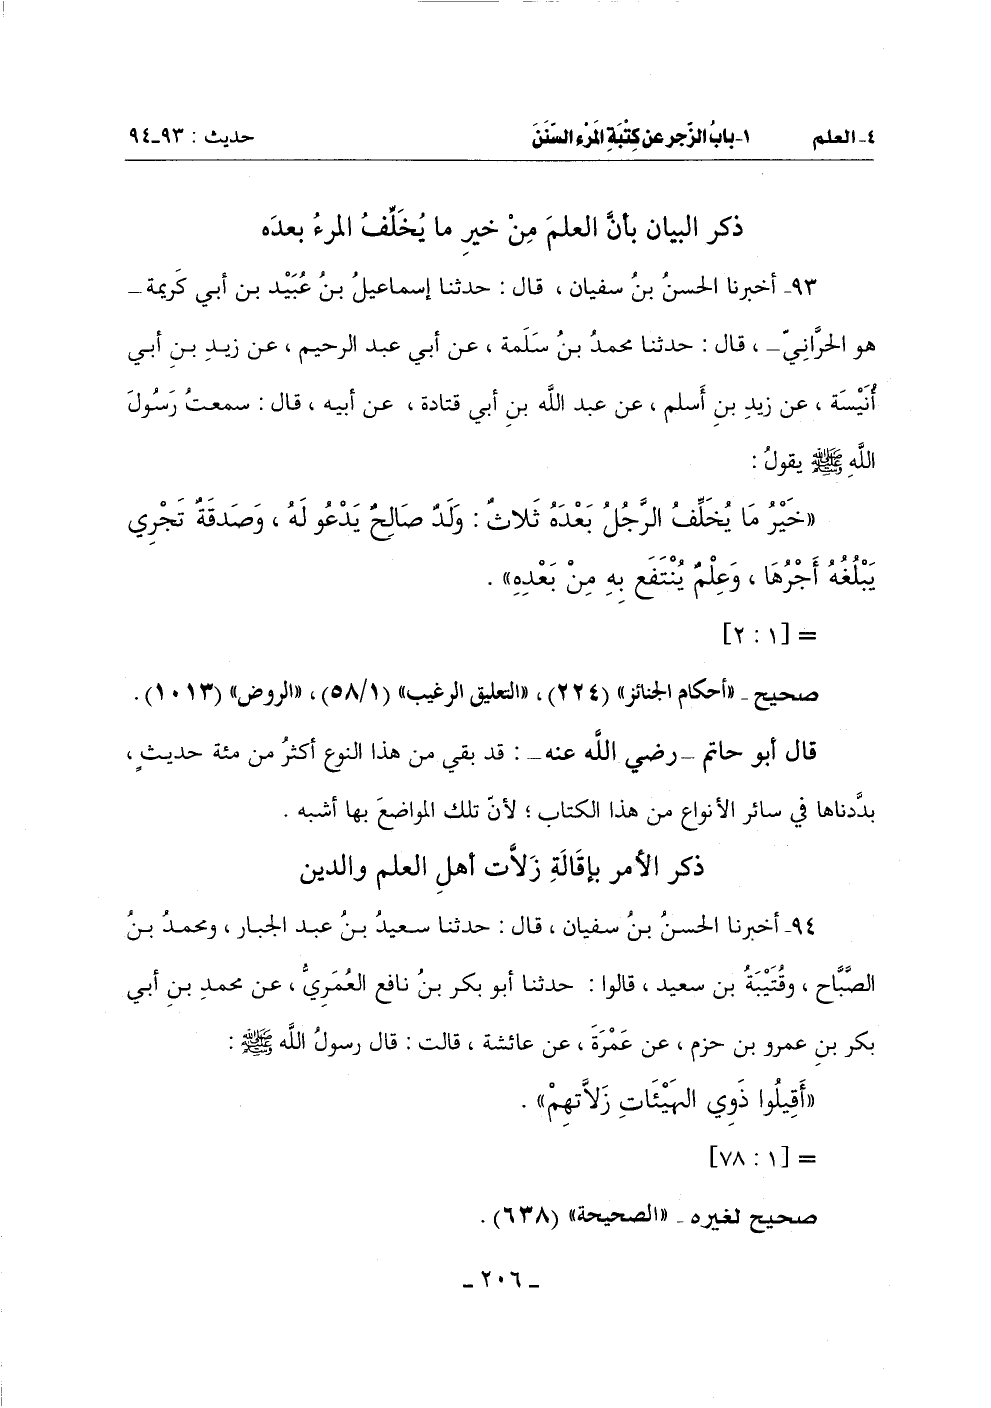 ٤- العلم ١- بابُ الزَّجر عن كِتْبَةِ المَرْء السُّنَنَ حديث : ٩٣-٩٤
ذكر البيان بأنَّ العلمَ مِنْ خيرِ ما يُخَلِّفُ المرءُ بعدَه
٩٣- أخبرنا الحسنُ بنُ سفيان ، قال : حدثنا إسماعيلُ بنُ عُبَيْد بن أبي كَريمة –
هو الحَرَّانِيّ – ، قال : حدثنا محمدُ بنُ سَلَمة ، عن أبي عبد الرحيم ، عن زيدِ بنِ أبي
أُنَيْسَة ، عن زيدِ بنِ أَسلم ، عن عبد اللَّه بنِ أبي قتادة ، عن أبيه ، قال : سمعتُ رَسُولَ
اللَّهِ ﷺ يقولُ :
«خَيْرُ مَا يُخَلِّفُ الرَّجُلُ بَعْدَهُ ثَلاثٌ : وَلَدٌ صَالِحٌ يَدْعُو لَهُ ، وَصَدَقَةٌ تَجْرِي
يَبْلُغُهُ أَجْرُهَا ، وَعِلْمٌ يُنْتَفَع بِهِ مِنْ بَعْدِهِ» .
= [١ : ٢]
صحيح - «أحكام الجنائز» (٢٢٤) ، «التعليق الرغيب» (٥٨/١) ، «الروض» (١٠١٣) .
قال أبو حاتم – رضي اللَّه عنه – : قد بقي من هذا النوع أكثرُ من مئة حديثٍ ،
بدَّدناها في سائر الأنواع من هذا الكتاب ؛ لأنّ تلك المواضعَ بها أشبه .
ذكر الأمر بإقَالَةِ زَلاَّت أهلِ العلم والدين
٩٤- أخبرنا الحسنُ بنُ سفيان ، قال : حدثنا سعيدُ بنُ عبد الجبار ، ومحمدُ بنُ
الصَّبَّاح ، وقُتَيْبَةُ بن سعيد ، قالوا : حدثنا أبو بكر بنُ نافع العُمَريُّ ، عن محمدِ بنِ أبي
بكر بنِ عمرو بن حزم ، عن عَمْرَةَ ، عن عائشة ، قالت : قال رسولُ اللَّه ﷺ :
«أَقِيلُوا ذَوِي الهَيْئَاتِ زَلاَّتهِمْ» .
= [١ : ٧٨]
صحيح لغيره - «الصحيحة» (٦٣٨) .
- ٢٠٦ -